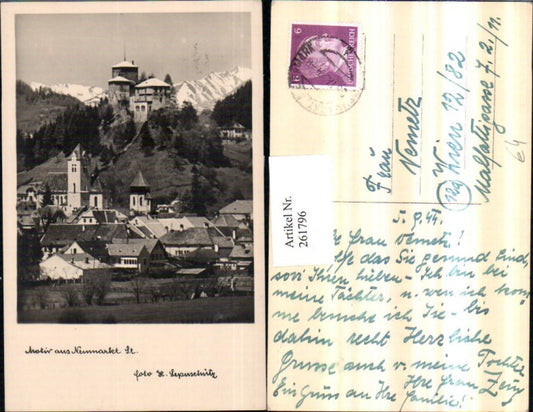 Motiv aus Neumarkt St.
foto H.
6 REICH 6
Artikel Nr.
261796
Frau
Nemetz
Wien 12/82
12a
Malfattigasse 7. 2./11.
64
5. 9. 44.
Frau Nemetz!
das Sie gesund sind,
Ihre lieben - Ich bin bei
meine Töchter, u. wen ich
besuche ich Sie - bis
dahin recht Herzliche
Grüsse auch v. meine Tochter
Ihre Frau
Ein Gruss an Ihre Familie!